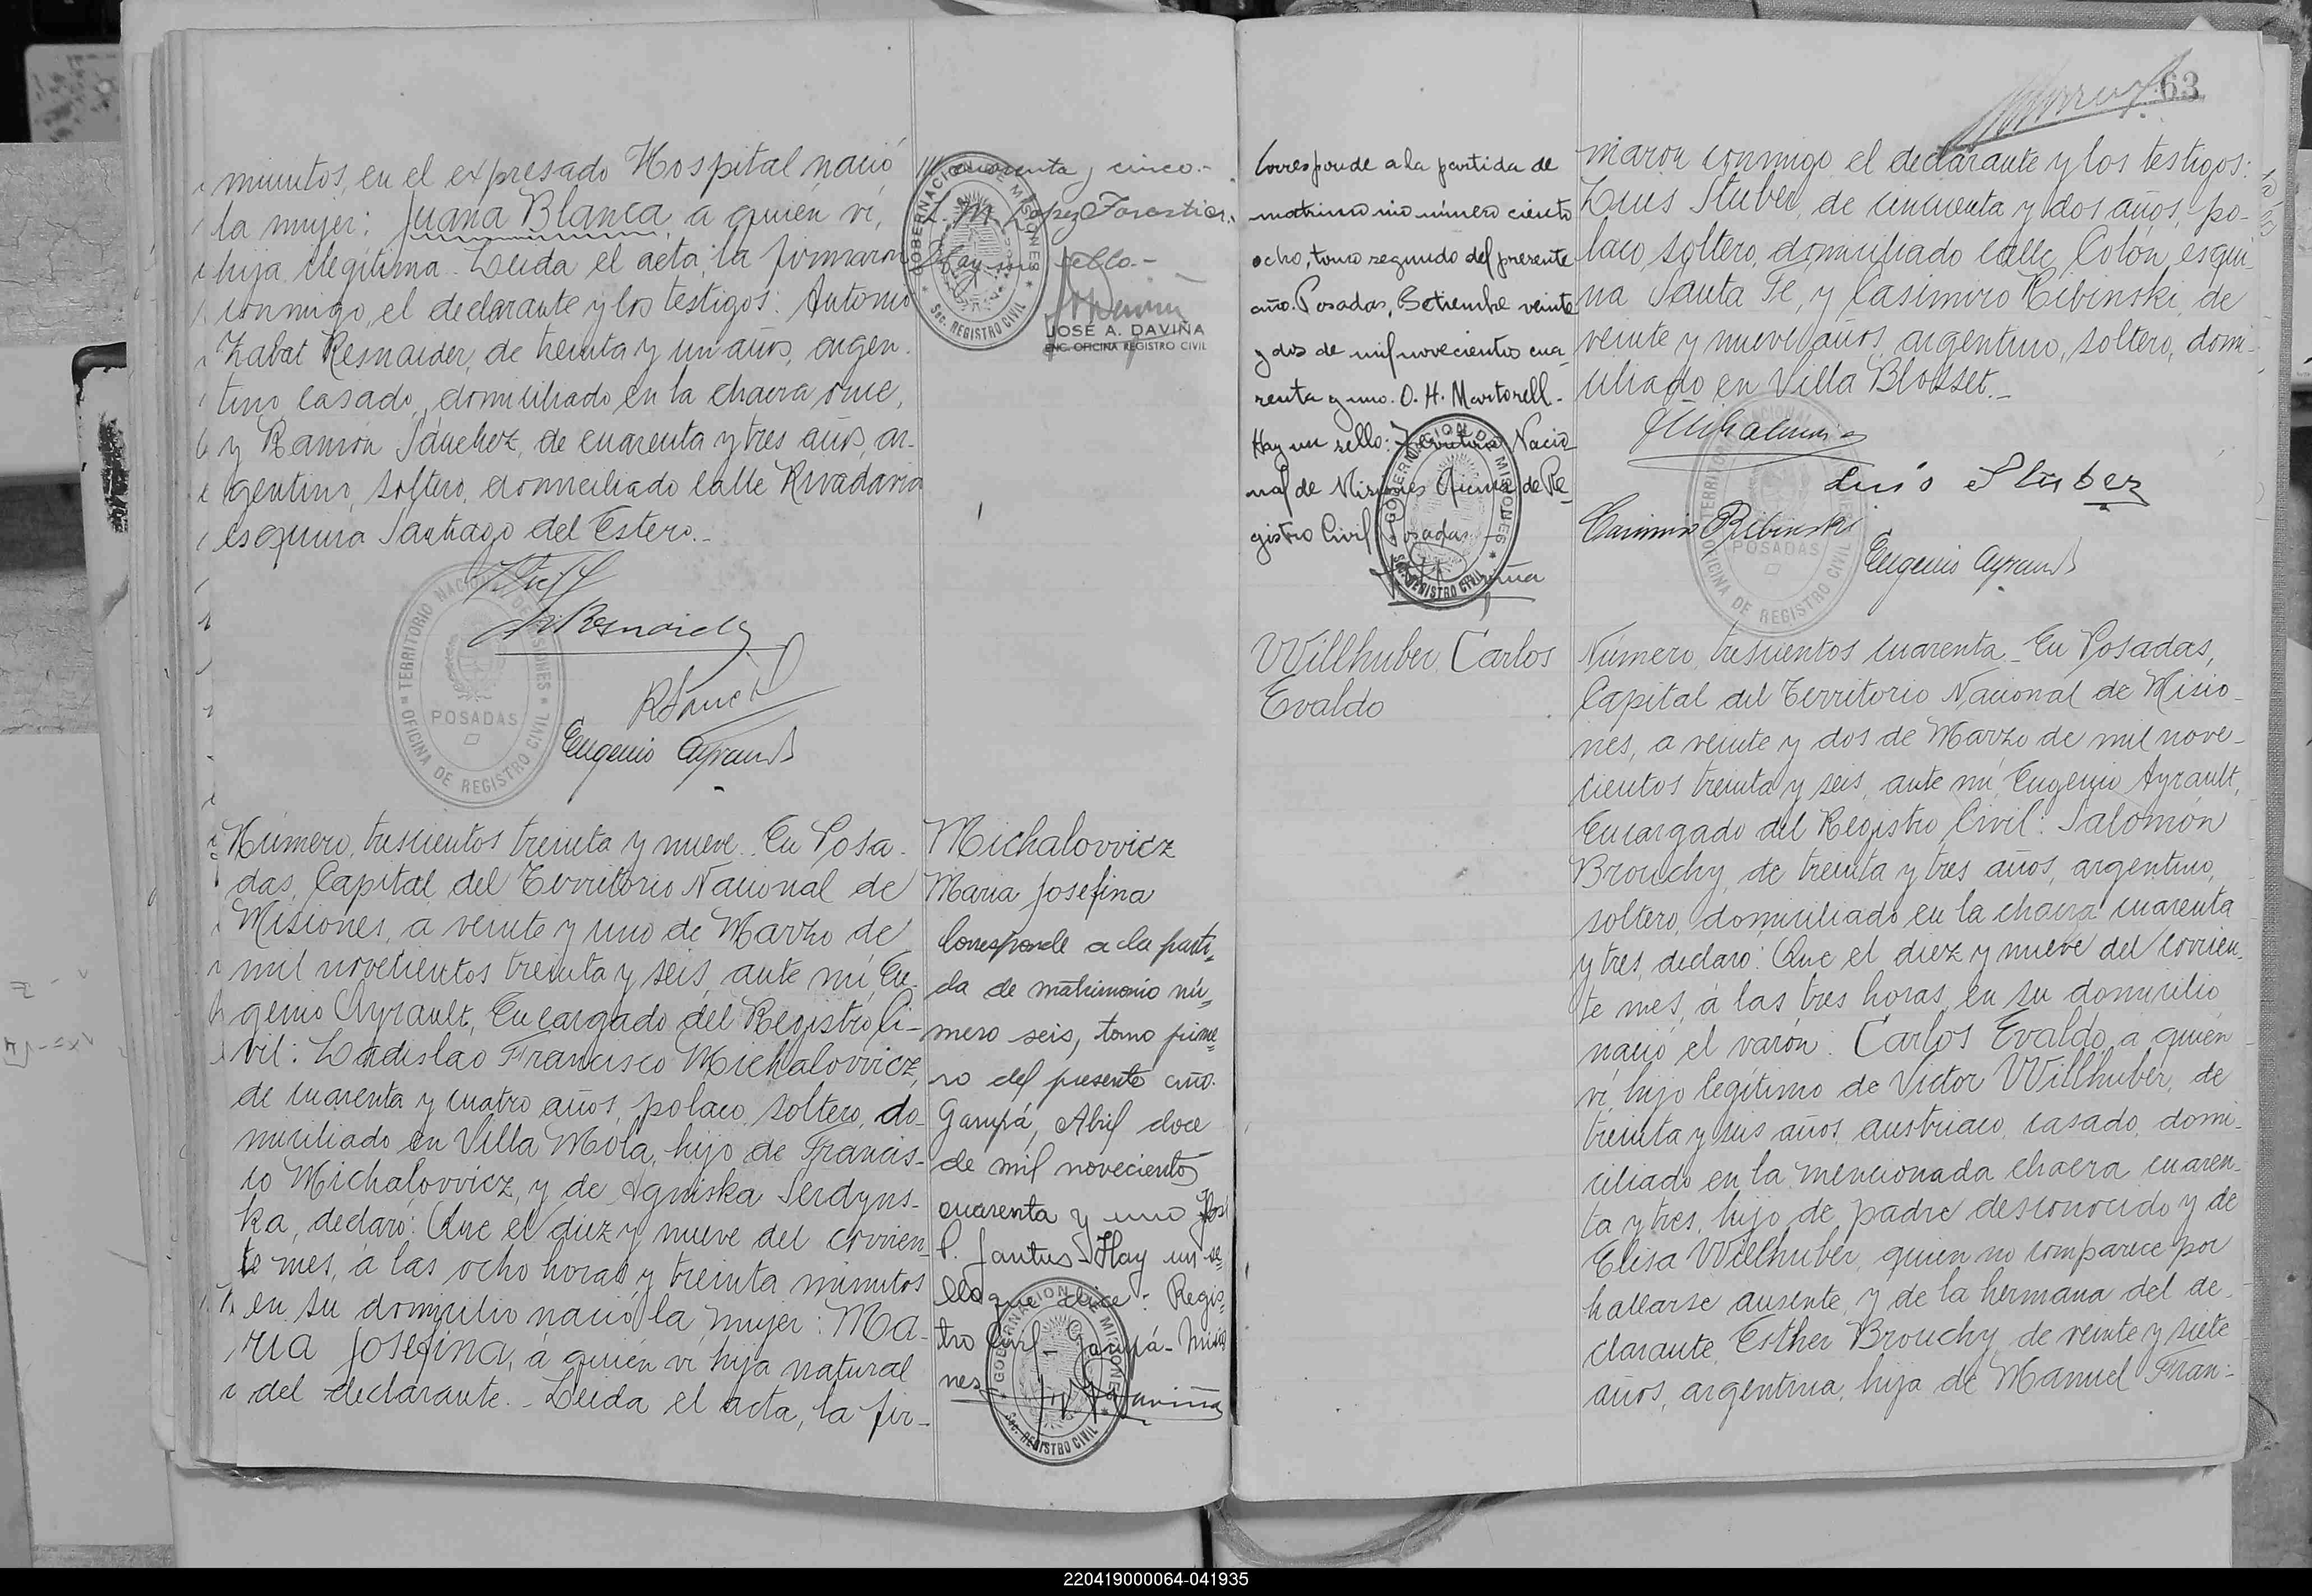 minutos, en el expresado Hospital nació
la mujer: Juana Blanca, a quién ví,
hija ilegítima. Leida el acta, la firmaron
conmigo, el declarante y los testigos: Antonio
Zabat Resnaider, de treinta y un años, argen-
tino, casado, domiciliado en la chacra once,
y Ramón Sánchez, de cuarenta y tres años, ar-
gentino, soltero, domiciliado calle Rivadavia
esquina Santiago del Estero.-
TERRITORIO NACIONAL DE MISIONES
OFICINA DE REGISTRO CIVIL
POSADAS
Eugenio Ayrault
cuarenta y cinco.-
L. M. Lopez Forastier.
Hay un sello.-
GOBERNACION DE MISIONES
Sec. REGISTRO CIVIL
JOSÉ A. DAVIÑA
ENC. OFICINA REGISTRO CIVIL
Número, trescientos treinta y nueve. En Posa-
das, Capital del Territorio Nacional de
Misiones, a veinte y uno de Marzo de
mil novecientos treinta y seis, ante mí, Eu-
genio Ayrault, Encargado del Registro Ci-
vil: Ladislao Francisco Michalovvicz,
de cuarenta y cuatro años, polaco, soltero, do-
miciliado en Villa Mola, hijo de Francis-
co Michalovvicz, y de Agniska Serdyns-
ka, declaró: Que el diez y nueve del corrien-
te mes, á las ocho horas y treinta minutos
en su domicilio nació la mujer: Ma-
ria Josefina, á quién ví hija natural
del declarante.- Leida el acta, la fir-
Michalovvicz
Maria Josefina
Corresponde a la parti-
da de matrimonio nú-
mero seis, tomo prime-
ro del presente año.
Garupá, Abril doce
de mil novecientos
cuarenta y uno José
P. Santus- Hay un se-
llo que dice: Regis-
tro Civil- Garupá- Misio
nes-
GOBERNACION DE MISIONES
Sec. REGISTRO CIVIL
63
Corresponde a la partida de
matrimonio número ciento
ocho, tomo segundo del presente
año. Posadas, Setiembre veinte
y dos de mil novecientos cua-
renta y uno. O. H. Martorell.-
Hay un sello: Territorio Nacio
nal de Misiones Oficina de Re-
gistro Civil Posadas-
GOBERNACION DE MISIONES
Sec. REGISTRO CIVIL
maron conmigo, el declarante y los testigos:
Luis Stuber, de cincuenta y dos años, po-
laco, soltero, domiciliado calle Colón, esqui-
na Santa Fe, y Casimiro Ribinski, de
veinte y nueve años, argentino, soltero, domi-
ciliado en Villa Blosset.-
Luis Stuber
Casimiro Ribinski
Eugenio Ayrault
TERRITORIO NACIONAL DE MISIONES
OFICINA DE REGISTRO CIVIL
POSADAS
VVillhuber, Carlos
Evaldo
Número, trescientos cuarenta.- En Posadas,
Capital del Territorio Nacional de Misio-
nes, a veinte y dos de Marzo de mil nove-
cientos treinta y seis, ante mí, Eugenio Ayrault,
Encargado del Registro Civil: Salomón
Brouchy, de treinta y tres años, argentino,
soltero, domiciliado en la chacra cuarenta
y tres, declaró: Que el diez y nueve del corrien-
te mes, á las tres horas, en su domicilio
nació el varón: Carlos Evaldo, a quién
ví, hijo legítimo de Victor VVillhuber, de
treinta y seis años, austriaco, casado, domi-
ciliado en la mencionada chacra cuaren-
ta y tres, hijo de padre desconocido y de
Elisa VVillhuber, quien no comparece por
hallarse ausente, y de la hermana del de-
clarante, Esther Brouchy, de veinte y siete
años, argentina, hija de Manuel Fran-
220419000064-041935